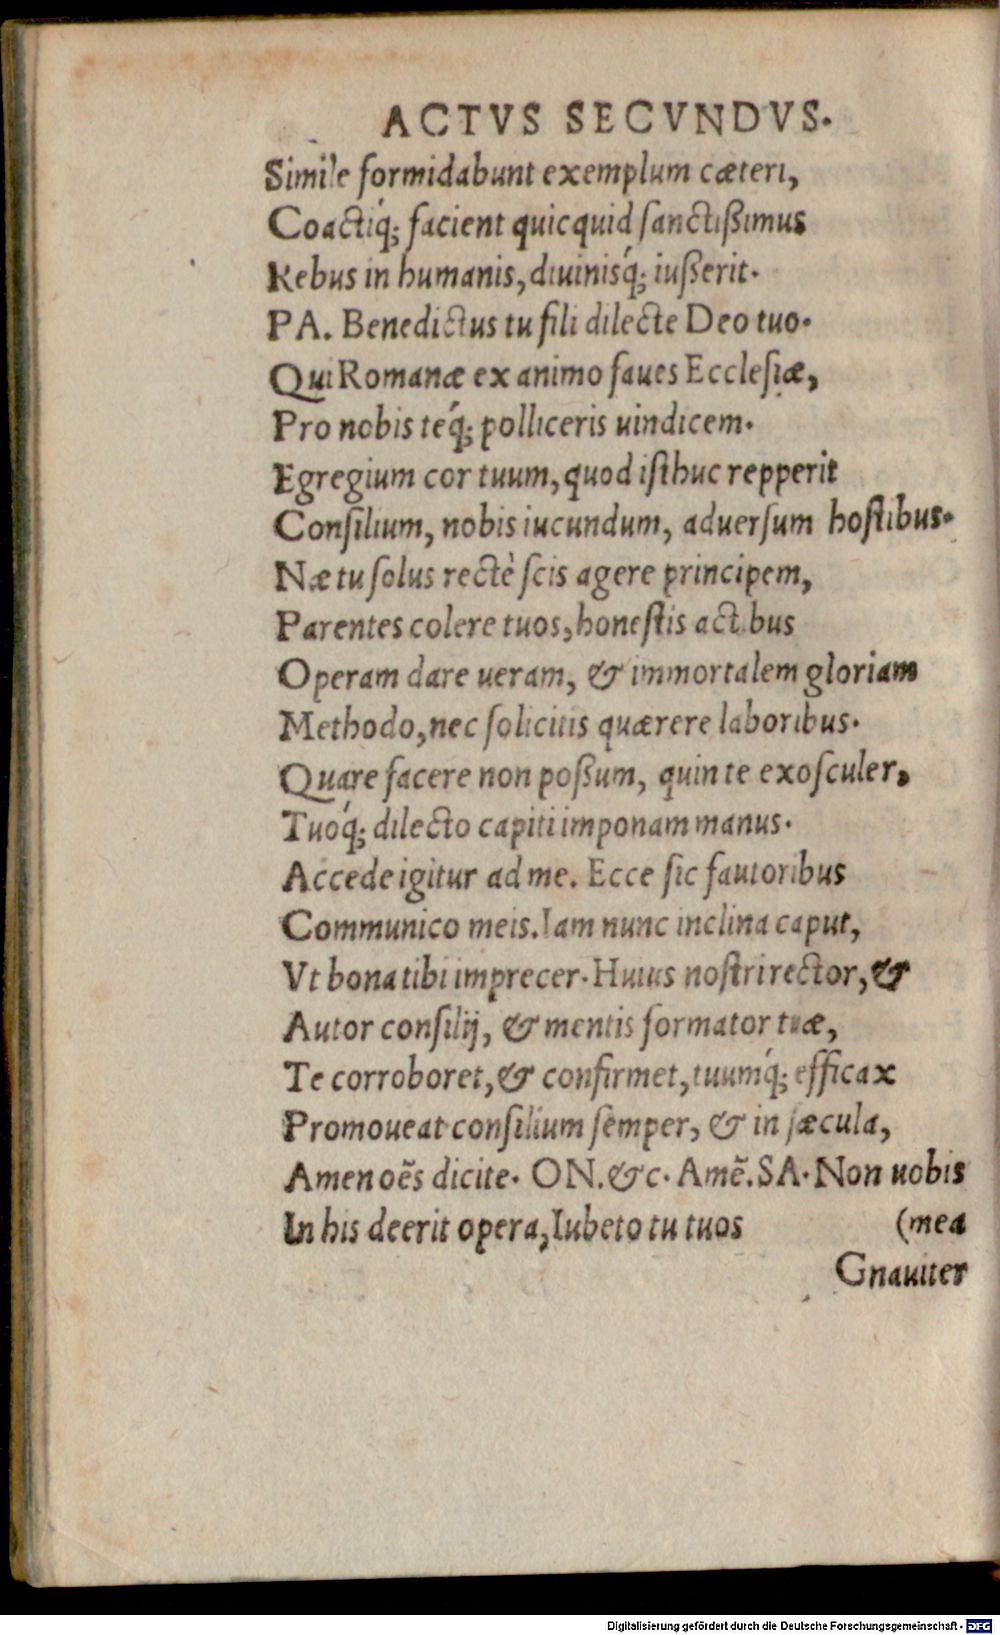 ACTVS SECVNDVS.
Simile formidabunt exemplum cæteri,
Coactiq́; facient quicquid sanctißimus
Rebus in humanis, diuinisq́; iußerit.
PA. Benedictus tu fili dilecte Deo tuo.
Qui Romanæ ex animo faues Ecclesiæ,
Pro nobis teq́; polliceris uindicem.
Egregium cor tuum, quod isthuc repperit
Consilium, nobis iucundum, aduersum hostibus.
Næ tu solus rectè scis agere principem,
Parentes colere tuos, honestis actibus
Operam dare ueram, & immortalem gloriam
Methodo, nec solicitis quærere laboribus.
Quare facere non poßum, quin te exosculer,
Tuoq́; dilecto capiti imponam manus.
Accede igitur ad me. Ecce sic fautoribus
Communico meis. Iam nunc inclina caput,
Vt bona tibi imprecer. Huius nostri rector, &
Autor consilij, & mentis formator tuæ,
Te corroboret, & confirmet, tuumq́; efficax
Promoueat consilium semper, & in sæcula,
Amen oẽs dicite. ON. &c. Amẽ. SA. Non uobis
In his deerit opera, Iubeto tu tuos (mea
Gnauiter
Digitalisierung gefördert durch die Deutsche Forschungsgemeinschaft - DFG